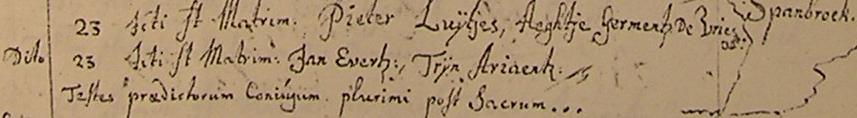 23 Icti st Matrim: Pieter Luÿtjes, Aeghtje Germentz De Vries Spanbroek.
Dito 23 Icti st Matrim: Jan Evertz:, Trÿn Ariaentz:
Testes prædictorum Coniugum plurimi post Sacrum...